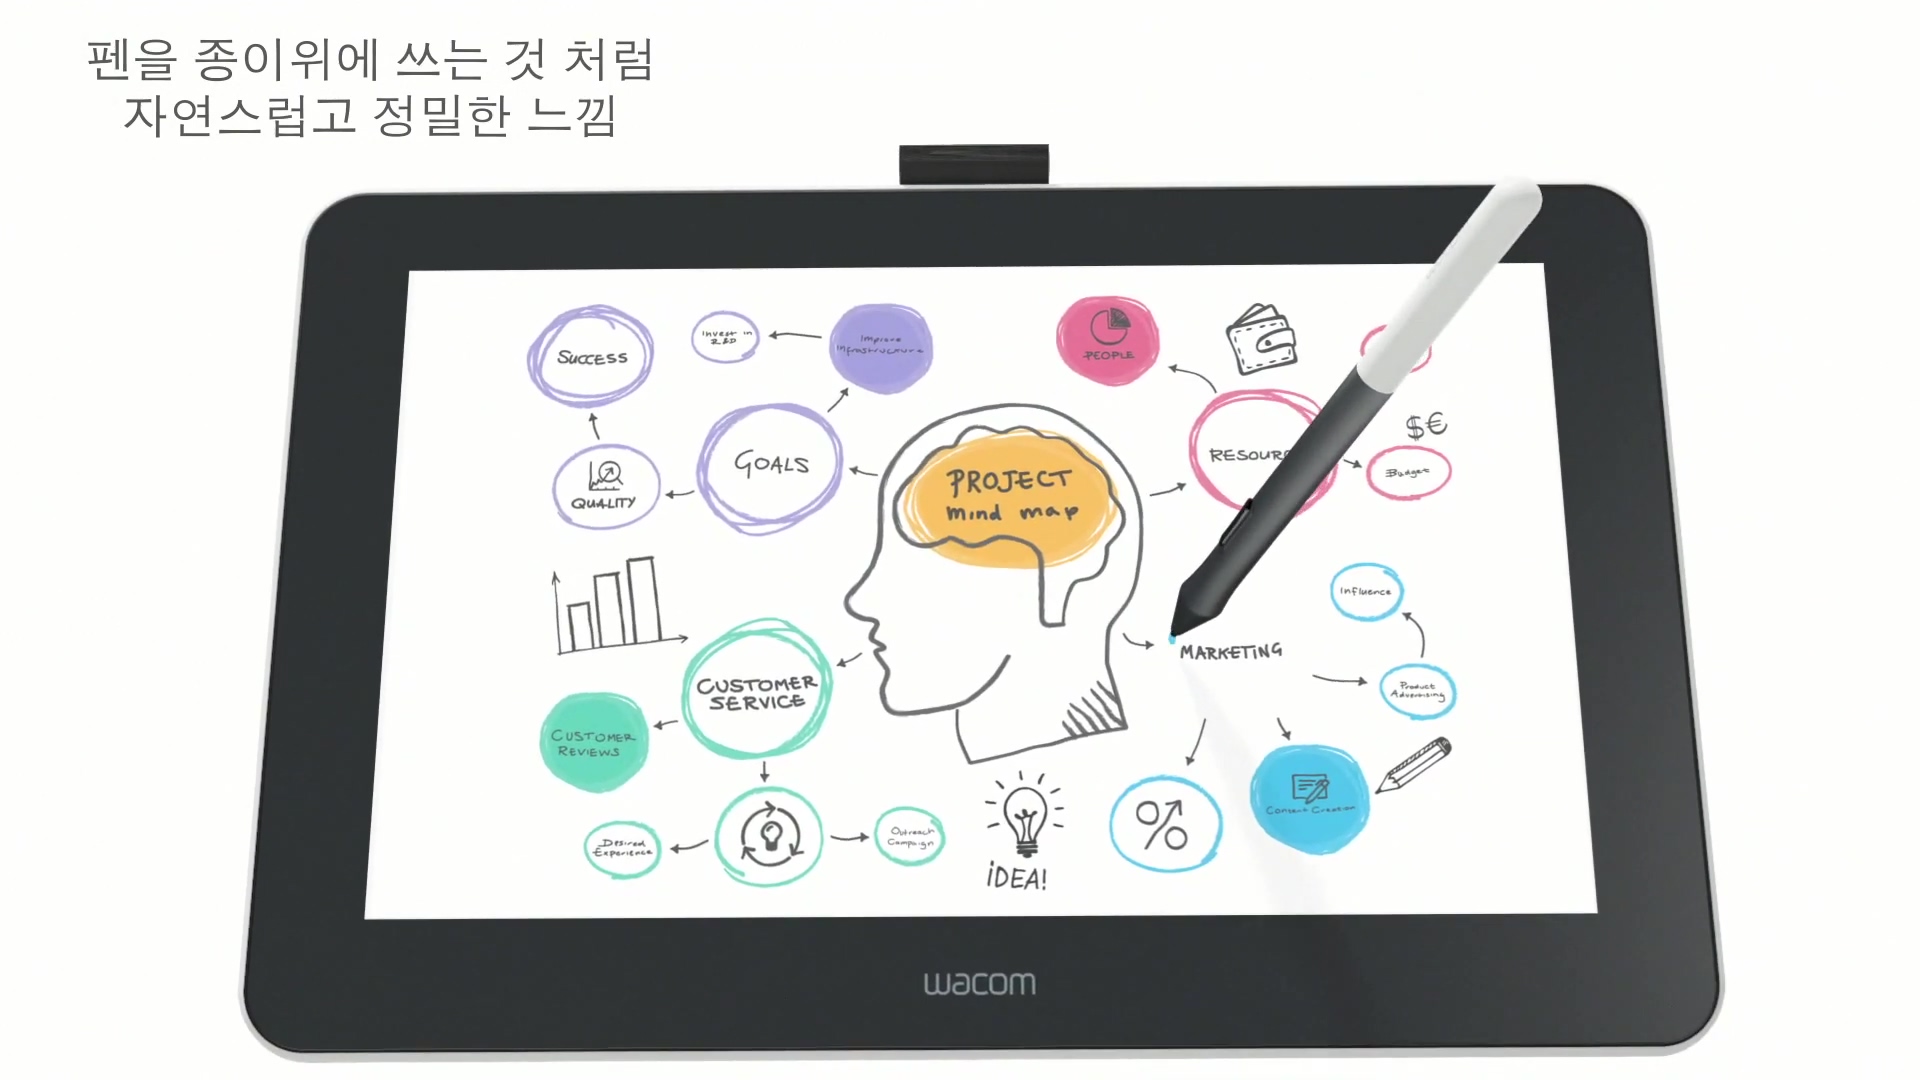 펜을 종이위에 쓰는 것 처럼
자연스럽고 정밀한 느낌
SUCCESS
Invest in
R&D
Improve
Infrastructure
PEOPLE
GOALS
QUALITY
PROJECT
mind map
RESOUR
$€
Budget
Influence
MARKETING
Product
Advertising
CUSTOMER
SERVICE
CUSTOMER
REVIEWS
Desired
Experience
Outreach
Campaign
iDEA!
%
Content Creation
wacom